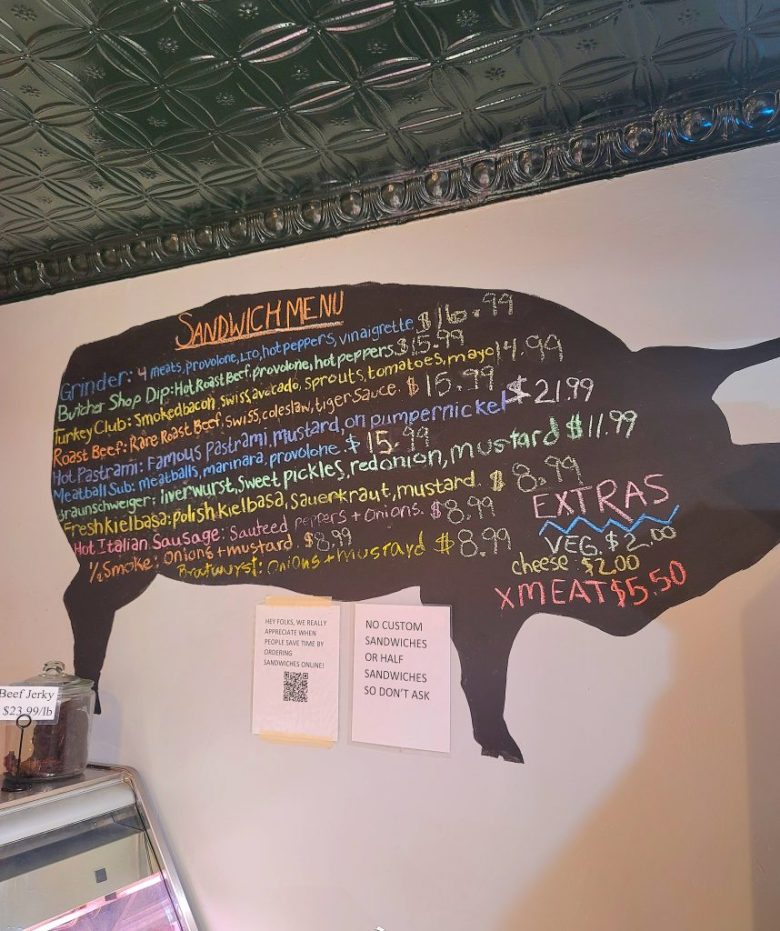 SANDWICH MENU
Grinder: 4 meats, provolone, LTO, hot peppers, vinaigrette $16.99
Butcher Shop Dip: Hot Roast Beef, provolone, hot peppers. $15.99
Turkey Club: Smoked bacon, swiss, avocado, sprouts, tomatoes, mayo 14.99
Roast Beef: Rare Roast Beef, swiss, coleslaw, tiger sauce. $15.99
Hot Pastrami: Famous Pastrami, mustard, on pumpernickel $21.99
Meatball Sub: meatballs, marinara, provolone. $15.99
Braunschweiger: liverwurst, sweet pickles, red onion, mustard $11.99
Fresh kielbasa: polish kielbasa, sauerkraut, mustard. $8.99
Hot Italian Sausage: Sauteed peppers + onions. $8.99
1/2 Smoke: onions + mustard. $8.99
Bratwurst: onions + mustard $8.99
EXTRAS
VEG. $2.00
cheese $2.00
X MEAT $5.50
HEY FOLKS, WE REALLY
APPRECIATE WHEN
PEOPLE SAVE TIME BY
ORDERING
SANDWICHES ONLINE!
NO CUSTOM
SANDWICHES
OR HALF
SANDWICHES
SO DON'T ASK
Beef Jerky
$23.99/lb